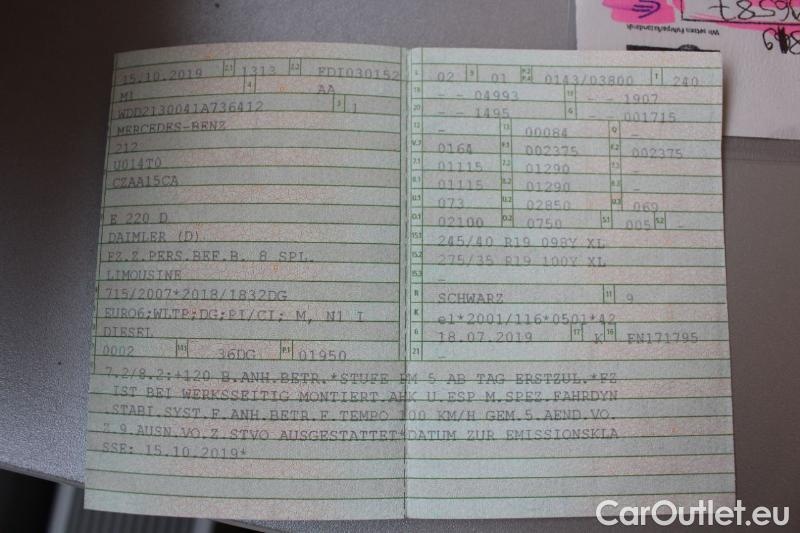 Wir setzen Fuhrparkstandards
15.10.2019 2.1 1313 2.2 FDI030152
M1 4 AA
WDD2130041A736412 3 1
MERCEDES-BENZ
212
U014T0
CZAA15CA
E 220 D
DAIMLER (D)
FZ.Z.PERS.BEF.B. 8 SPL.
LIMOUSINE
715/2007*2018/1832DG
EURO6;WLTP;DG;PI/CI; M, N1 I
DIESEL
0002 14.1 36DG P.1 01950
L 02 9 01 P.2 P.4 0143/03800 T 240
18 - - 04993 19 - - 1907
20 - - 1495 G - - 001715
12 - 13 00084 Q -
V.7 0164 F.1 002375 F.2 002375
7.1 01115 7.2 01290 7.3 -
8.1 01115 8.2 01290 8.3 -
U.1 073 U.2 02850 U.3 069
O.1 02100 O.2 0750 S.1 005 S.2 -
15.1 245/40 R19 098Y XL
15.2 275/35 R19 100Y XL
15.3 -
R SCHWARZ 11 9
K e1*2001/116*0501*42
6 18.07.2019 17 K 16 FN171795
21 -
7.2/8.2:+120 B.ANH.BETR.*STUFE PM 5 AB TAG ERSTZUL.*FZ
IST BEI WERKSSEITIG MONTIERT.AHK U.ESP M.SPEZ.FAHRDYN
.STABI.SYST.F.ANH.BETR.F.TEMPO 100 KM/H GEM.5.AEND.VO.
Z.9.AUSN.VO.Z.STVO AUSGESTATTET*DATUM ZUR EMISSIONSKLA
SSE: 15.10.2019*
CarOutlet.eu